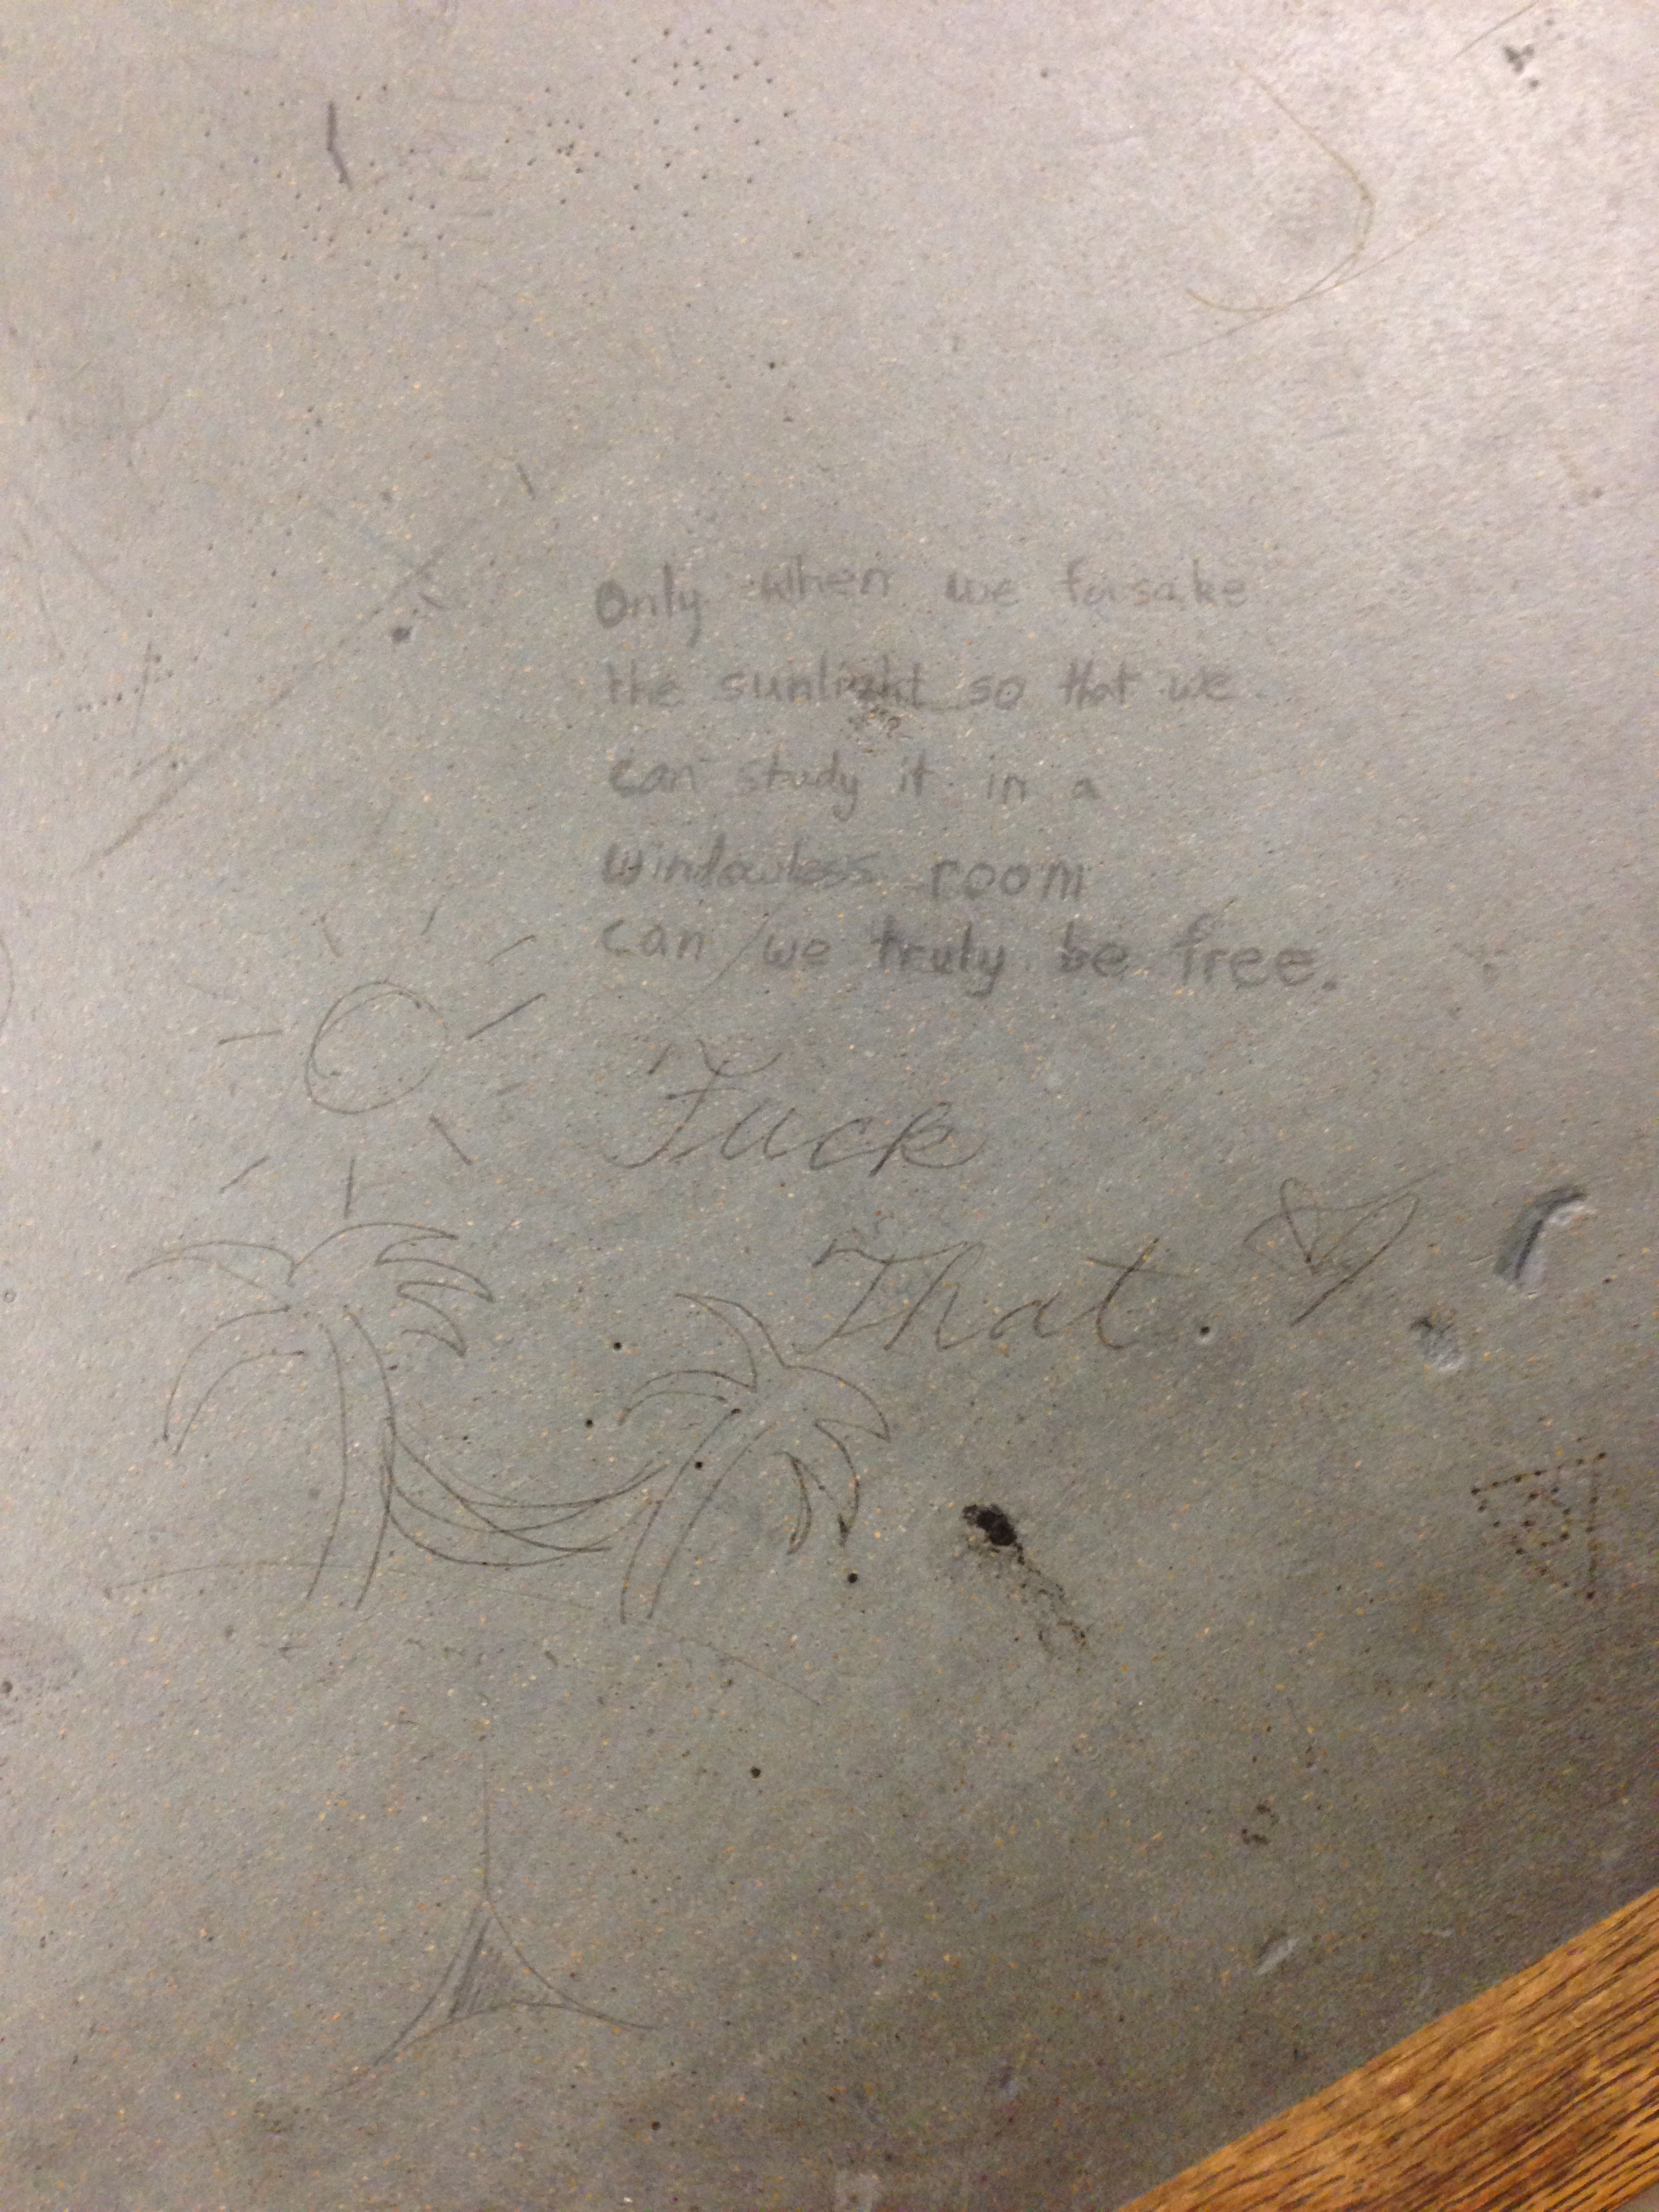 Only when we forsake
the sunlight so that we
can study it in a
windowless room
can we truly be free.
Fuck
That.